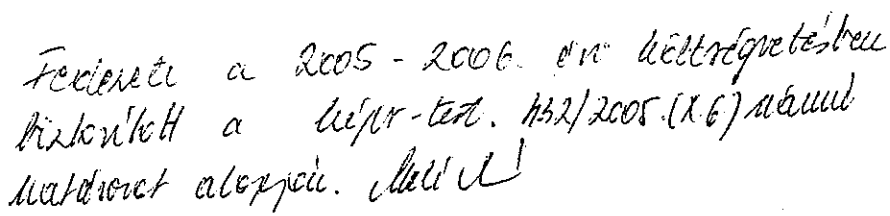 Fedezete a 2005-2006. évi költségvetésben
biztosított a képv-test. 432/2005.(X.6) számú
határozat alapján.